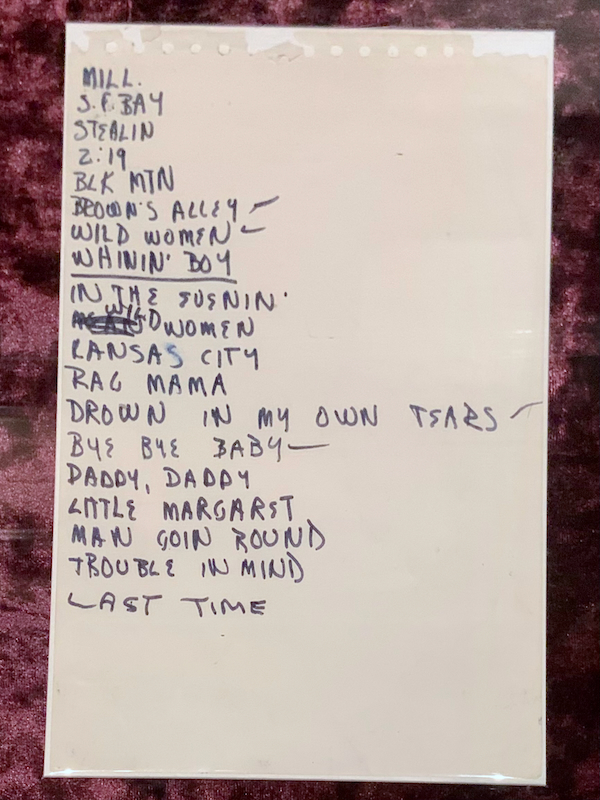 MILL.
S.F. BAY
STEALIN
2:19
BLK MTN
BROWN'S ALLEY
WILD WOMEN
WHININ' BOY
IN THE EVENIN'
WILD WOMEN
KANSAS CITY
RAG MAMA
DROWN IN MY OWN TEARS
BYE BYE BABY
DADDY, DADDY
LITTLE MARGARET
MAN GOIN ROUND
TROUBLE IN MIND
LAST TIME